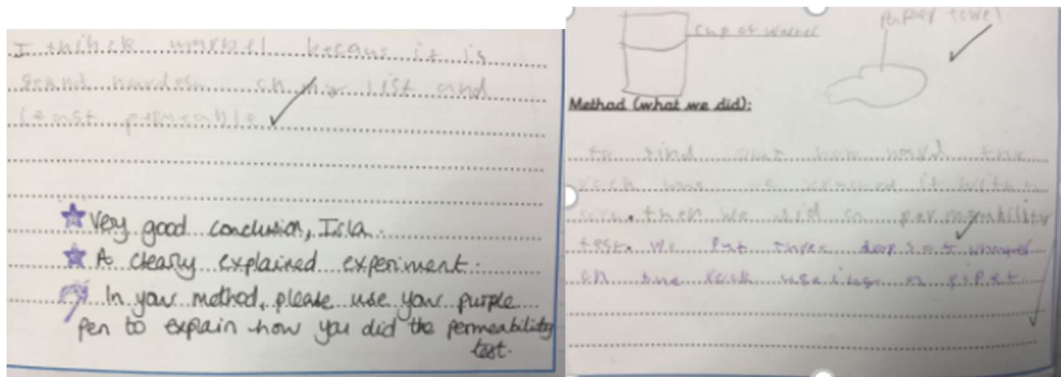 I think marbel becaus it is
seand hardest on my list and
least pumeable
Very good conclusion, Isla.
A clearly explained experiment.
In your method, please use your purple
pen to explain how you did the permeability
test.
cup of water
paper towel
Method (what we did):
to find out how hard the
rock was we scrached it with a
then we did a permeability
test. we put three drops of
on the rock useing a pipet